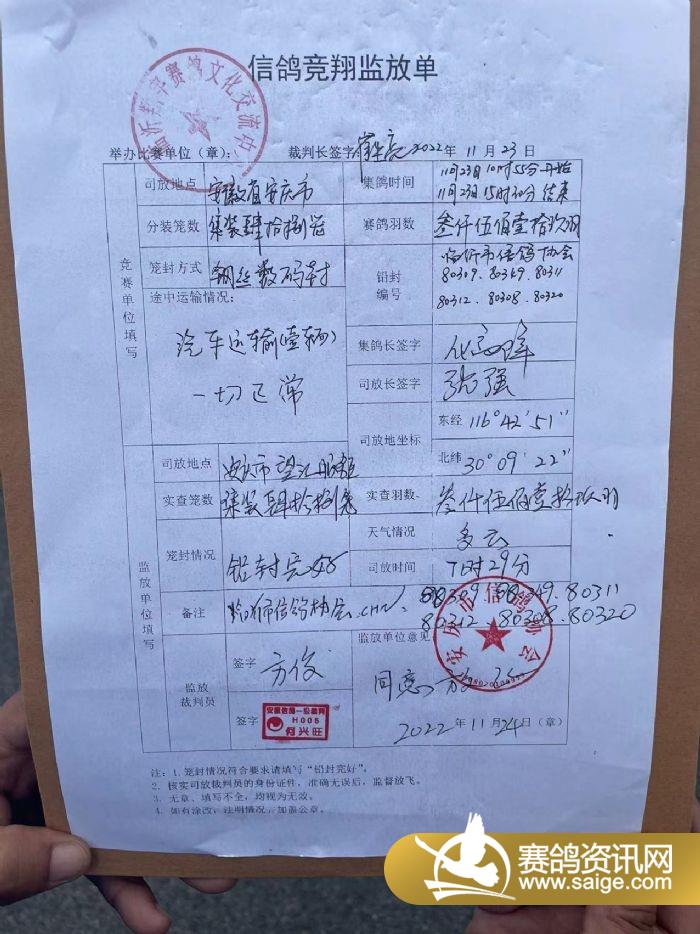 信鸽竞翔监放单
赛鸽文化交流中
举办比赛单位（章）： 裁判长签字 2022年11月23日
竞赛单位填写
司放地点 安徽省安庆市 集鸽时间 11月23日10时55分开始
11月23日15时30分结束
分装笼数 集装肆拾捌笼 赛鸽羽数 叁仟伍佰壹拾玖羽
笼封方式 钢丝数码封 铅封编号 临沂市信鸽协会
80309.80349.80311
80312.80308.80320
途中运输情况：
汽车运输(壹辆)
一切正常
集鸽长签字
司放长签字 张强
司放地坐标 东经 116°42′51″
北纬 30°09′22″
监放单位填写
司放地点 安庆市望江
实查笼数 集装肆拾捌笼 实查羽数 叁仟伍佰壹拾玖羽
笼封情况 铅封完好 天气情况 多云
司放时间 7时29分
备注 临沂市信鸽协会.CHN. 80309.80349.80311
80312.80308.80320
监放裁判员 签字 方俊
签字 安徽信鸽一级裁判
H005
何兴旺
监放单位意见
同意
安庆市信鸽协会
2022年11月24日（章）
注：1.笼封情况符合要求请填写“铅封完好”。
2．核实司放裁判员的身份证件，准确无误后，监督放飞。
3．无章、填写不全，均视为无效。
4．如有涂改，注明情况，加盖公章。
赛鸽资讯网
www.saige.com